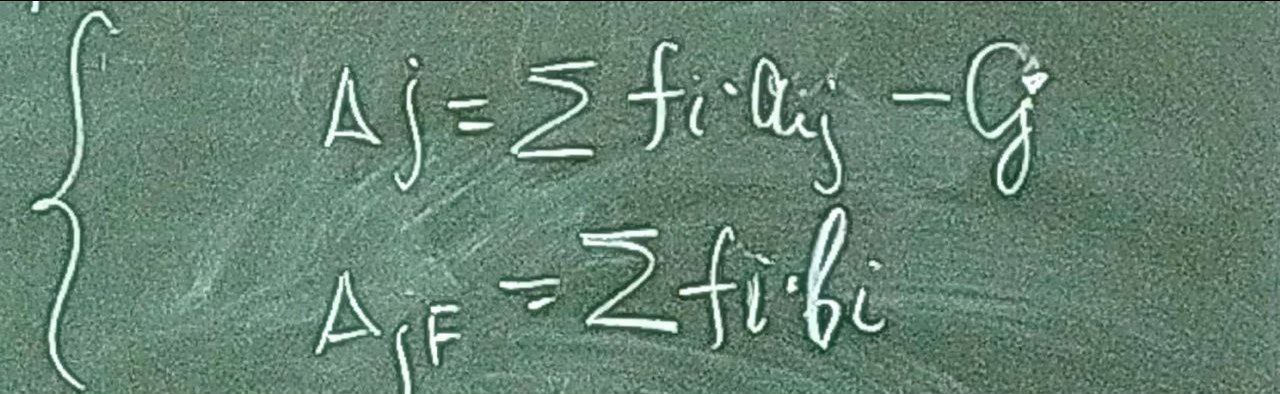 Δj = Σ fi · aij - Cj
ΔjF = Σ fi · bi